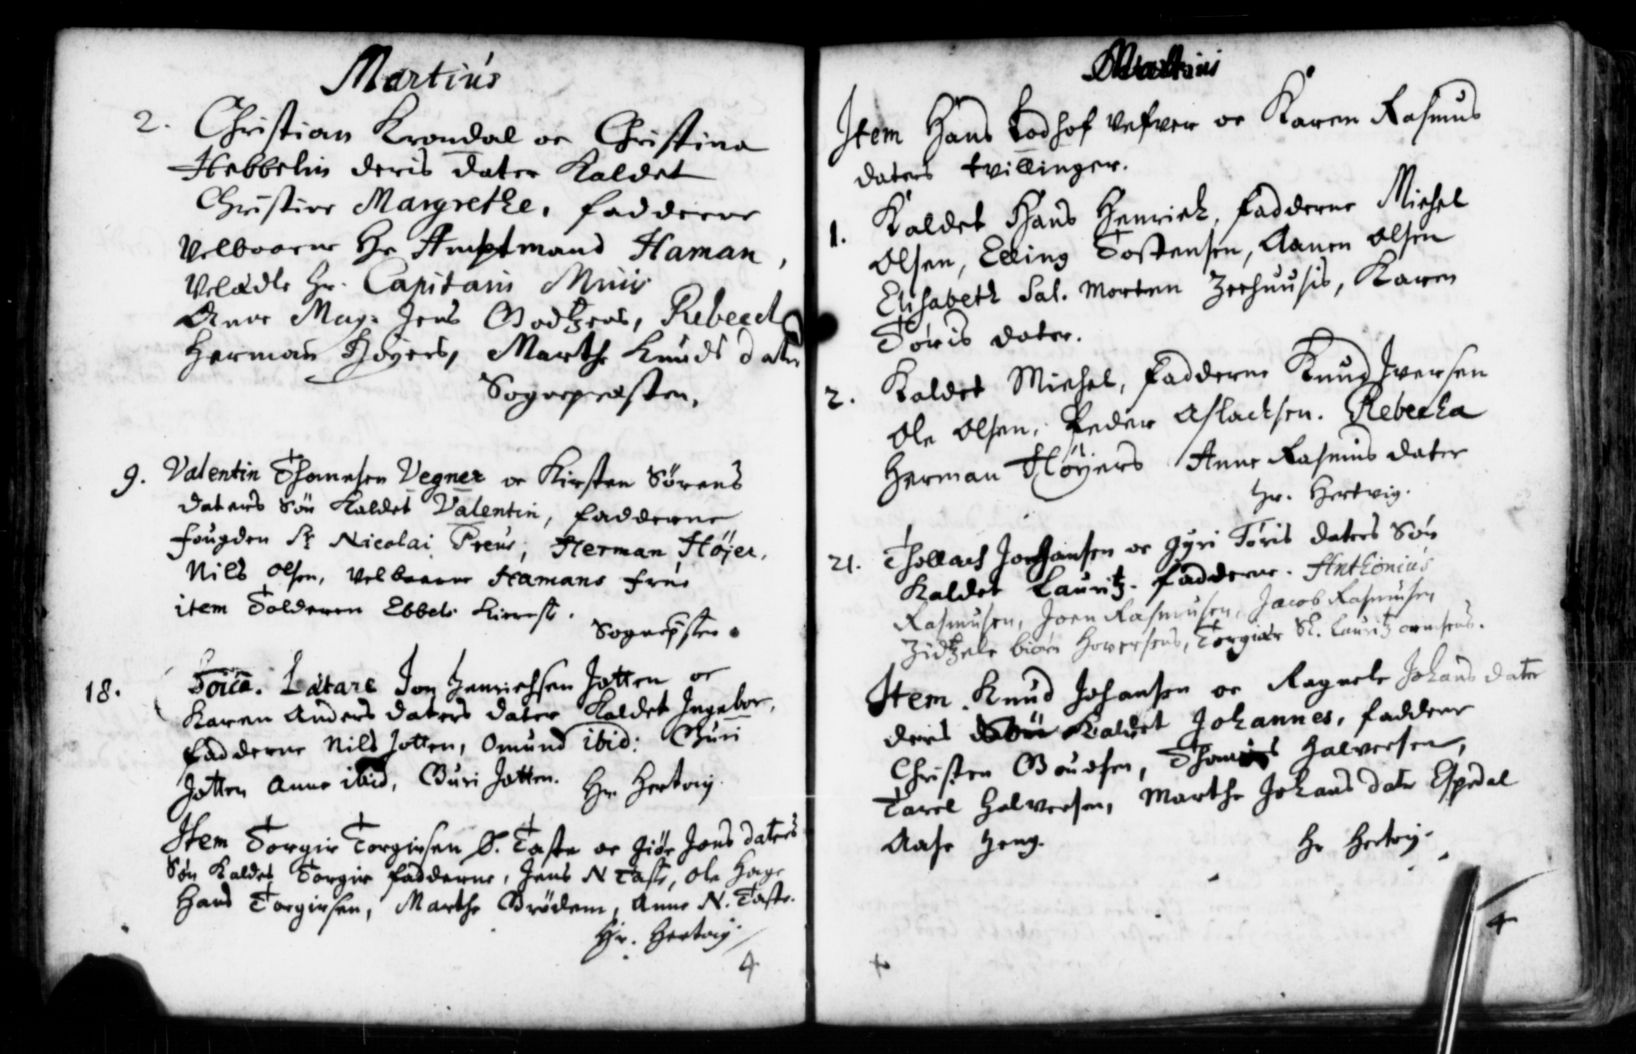 Martius
2. Christian Krondal oc Christina
Hebbelin deris dater Kaldet
Christine Margrethe, fadderne
Velbaarne Hr Amptmand Haman,
Velædle Hr. Capitain Muir
Anne Mag. Jens Godtzens, Rebecca
Herman Höyers, Marthe Knuds dater
Sognepresten.
9. Valentin Thomesen Vegner oc Kirsten Sörens
daters Sön Kaldet Valentin, fadderne
fougden Sr Nicolai Preus, Herman Höjer,
Nils Olsen, Velbaarne Hamans frue
item Tolderen Ebbels
Sognepsten.
18. Doica. Lætare Jon Henrichsen Jotten oc
Karen Anders daters dater Kaldet Ingebor,
fadderne Nils Jotten, Omund ibid: Guri
Jotten Anne ibid, Guri Jotten. Hr Hertvig.
Item Torgier Torgiersen S. Taste oc Giör Jons daters
Sön Kaldet Torgier fadderne, Jens N Taste, Ole Hage
Hans Torgiersen, Marthe Brödem, Anne N. Taste.
Hr. Hertvig.
4
Martius
Item Hans Lodhof Vefver oc Karen Rasmus
daters tvillinger.
1. Kaldet Hans Henrich, fadderne Michel
Olsen, Elling Tostensen, Aanen Olsen
Elisabeth Sal. Morten Zeehuusis, Karen
Töris dater.
2. Kaldet Michel, fadderne Knud Iversen
Ole Olsen, Peder Aslachsen. Rebecka
Herman Höyers Anne Rasmus dater
Hr. Hertvig.
21. Thollach Johansen oc Gyri Töris daters Sön
Kaldet Lauritz. fadderne. Anthonius
Rasmusen, Joen Rasmusen, Jacob Rasmusen
Zidtzele Torgier Sl. Lauritz
Item Knud Johansen oc Ragnele Johans dater
deris Sön Kaldet Johannes, faddere
Christen Goutsen, Thomas Halversen,
Tarel Halversen, Marthe Johans dater Espedal
Aase Heng. Hr Hertvig.
4